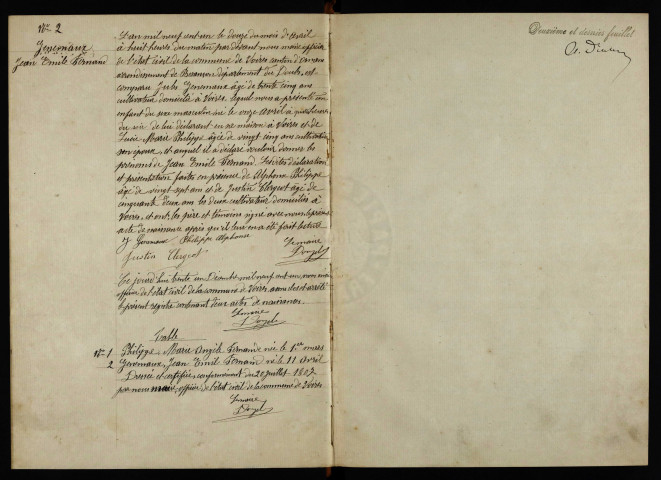 No 2
Genemaux
Jean Emile Fernand
L'an mil neuf cent un le douze du mois d'avril
à huit heures du matin par devant nous maire officier
de l'état civil de la commune de Voires canton d'
arrondissement de Besançon département du Doubs, est
comparu Jules Genemaux âgé de trente cinq ans
cultivateur domicilié à Voires, lequel nous a présenté un
enfant du sexe masculin né le onze avril à heures
du de lui déclarant en sa maison à Voires et de
Marie Philippe âgée de vingt cinq ans cultivatrice
son épouse, et auquel il a déclaré vouloir donner les
prénoms de Jean Emile Fernand. Lesdites déclaration
et présentation faites en présence de Alphonse Philippe
âgé de vingt sept ans et de Justin Clerget âgé de
cinquante deux ans les deux cultivateur domiciliés à
Voires, et ont les père et témoins signé avec nous le présent
acte de naissance après qu'il leur en a été fait lecture
J Genemaux Philippe Alphonse Le maire
Justin Clerget
Ce jourd'hui trente un Décembre mil neuf cent un, nous maire
officier de l'état civil de la commune de Voires avons clos et arrêté
le présent registre contenant deux actes de naissances.
Le maire
Table
No 1 Philippe, Marie Angèle Fernande née le 1er mars
2 Genemaux, Jean Emile Fernand né le 11 Avril
Dressée et certifiée conformément du 20 juillet 1807
par nous maire, officier de l'état civil de la commune de Voires
Le maire
Deuxième et dernier feuillet